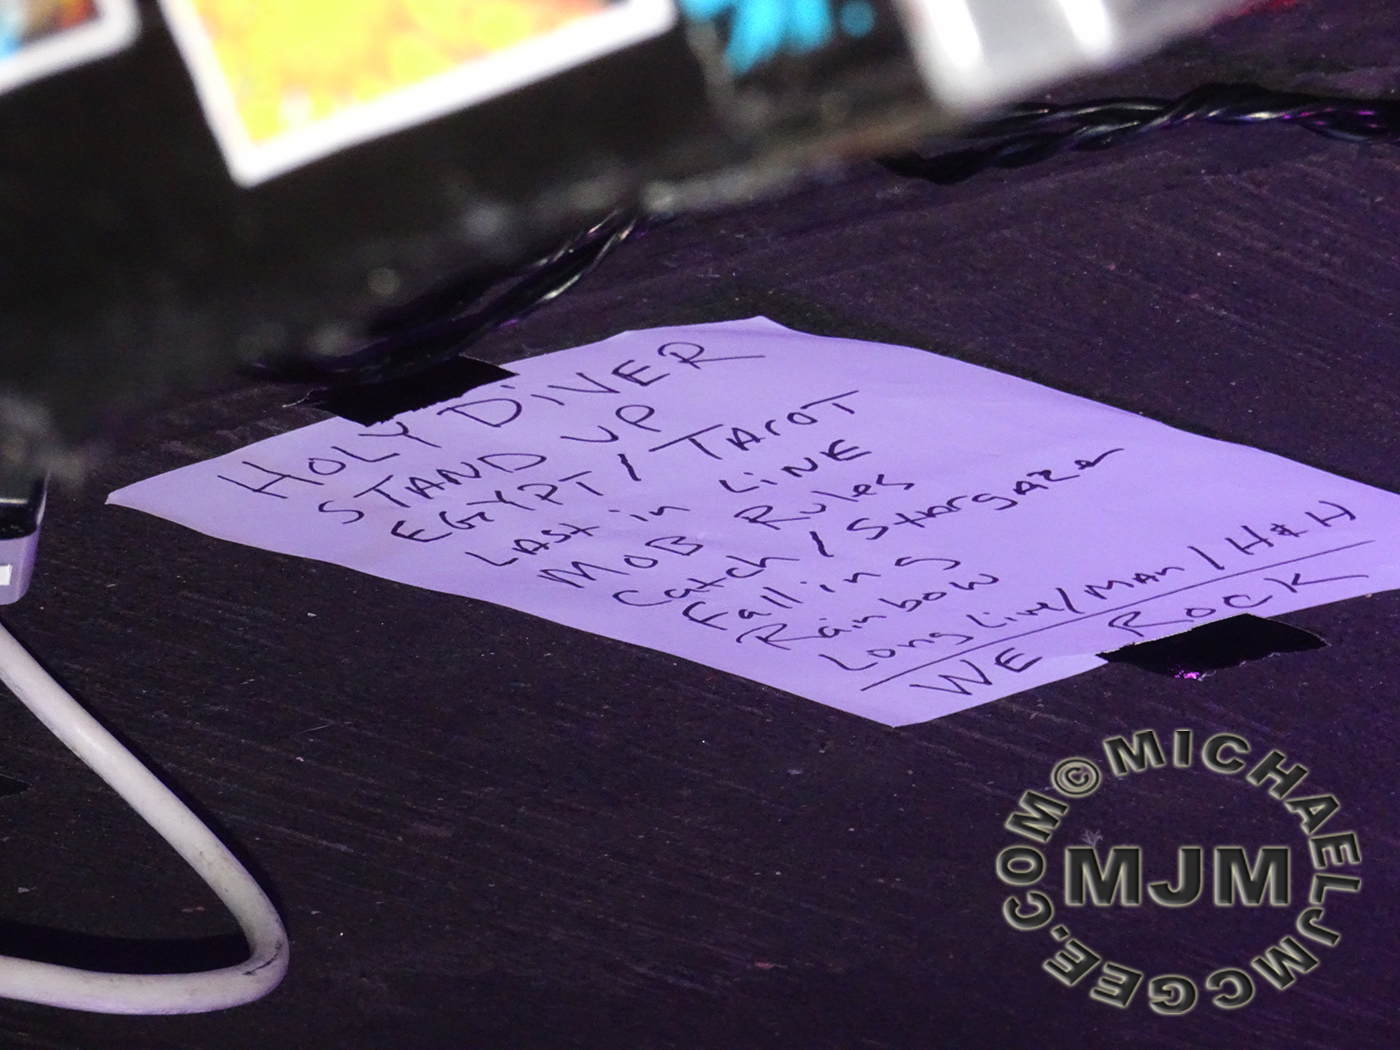 HOLY DiVER
STAND UP
EGYPT / TAROT
LASt in LiNE
MOB Rules
Catch / Stargazer
Falling
Rainbow
Long Live / MAn / H & H
WE ROCK
© MICHAELJMCGEE.COM
MJM